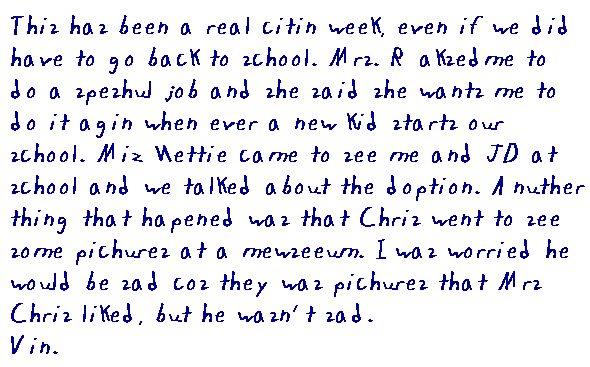 This has been a real citin week, even if we did
have to go back to school. Mrs. R aksed me to
do a speshul job and she said she wants me to
do it agin when ever a new kid starts our
school. Mis Nettie came to see me and JD at
school and we talked about the doption. A nuther
thing that hapened was that Chris went to see
some pichures at a mewseeum. I was worried he
would be sad cos they was pichures that Mrs
Chris liked, but he wasn't sad.
Vin.